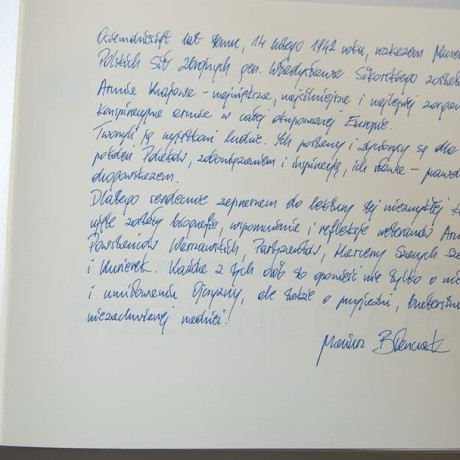 Osiemdziesiąt lat temu, 14 lutego 1942 roku, rozkazem Nacze
Polskich Sił Zbrojnych gen. Władysława Sikorskiego została
Armia Krajowa – największa, najsilniejsza i najlepiej zorgan
konspiracyjna armia w całej okupowanej Europie.
Tworzyli ją wybitni ludzie. Ich postawy i są dla
pokoleń Polaków, zobowiązaniem i inspiracją, ich sława – prawd
drogowskazem.
Dlatego serdecznie zapraszam do lektury tej niezwykłej k
zostały fotografie, wspomnienia i refleksje weteranów Arm
Powstańców Warszawskich, Partyzantów, Harcerzy Szarych Sze
i Kurierek. Każda z tych osób to opowieść nie tylko o
i umiłowaniu Ojczyzny, ale także o przyjaźni, braterstw
niezachwianej nadziei!
Mariusz Błaszczak